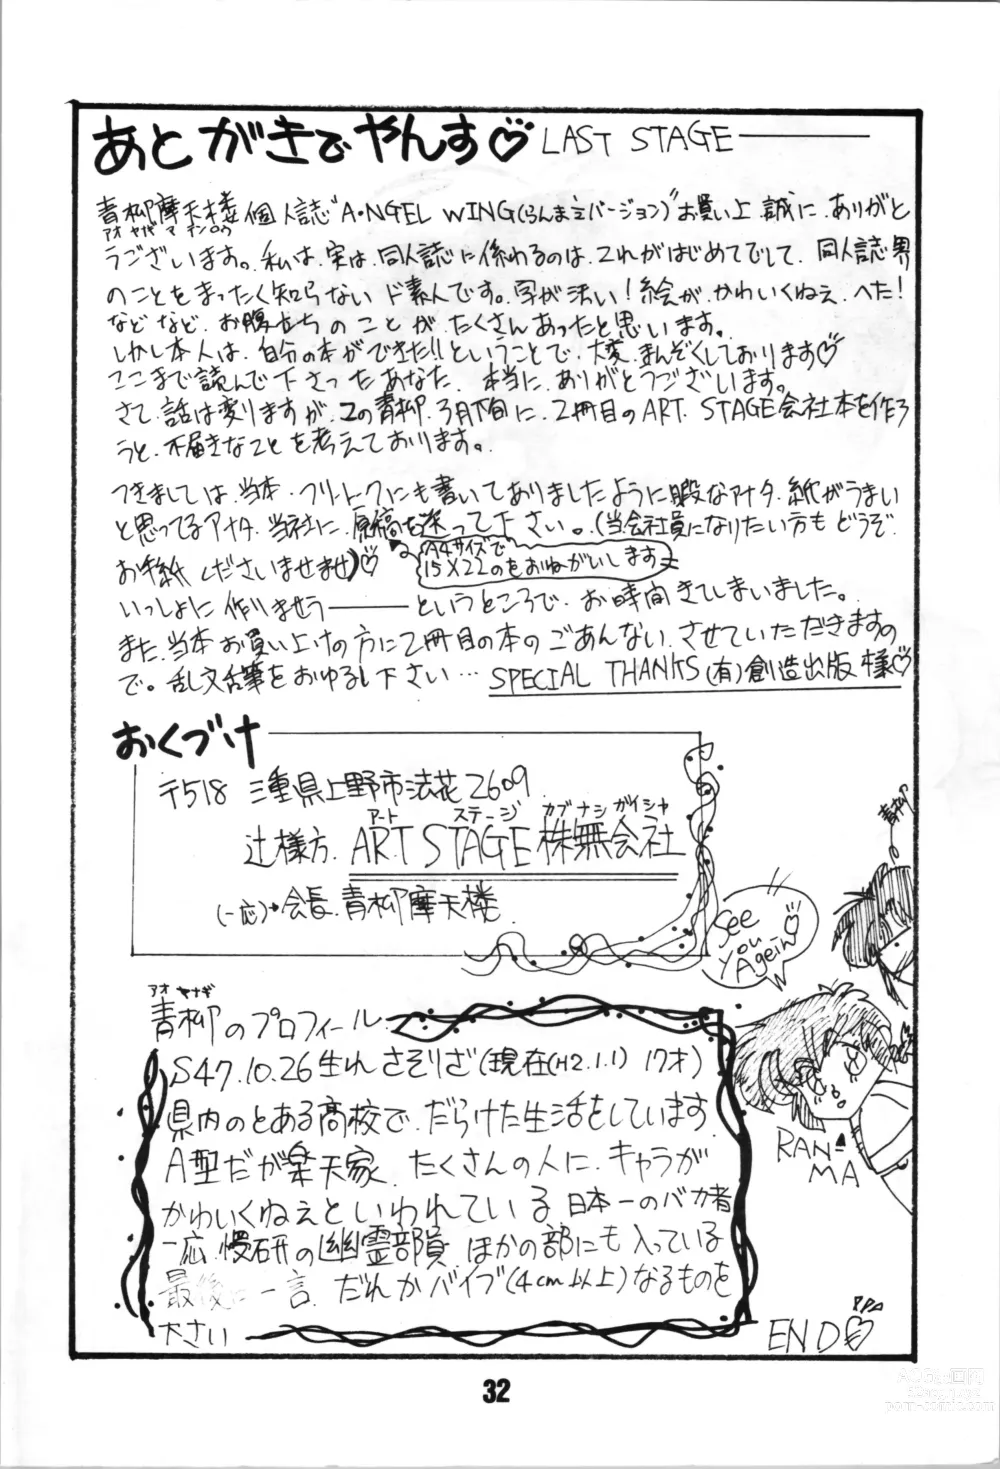 あとがきでやんす♡ LAST STAGE
青柳摩天楼個人誌"A・NGEL WING(らんまえバージョン)"お買い上誠に、ありがと
アオヤギマテンロウ
うございます。私は、実は、同人誌に係わるのは、これがはじめてでして、同人誌界
のことをまったく知らないド素人です。字が汚い!絵が、かわいくねぇ、へた!
などなど、お腹立ちのことが、たくさんあったと思います。
しかし本人は、自分の本ができた!!ということで、大変、まんぞくしております♡
ここまで読んで下さったあなた、本当に、ありがとうございます。
さて、話は変りますが、この青柳、3月下旬に、2冊目のART. STAGE会社本を作ろ
うと、不届きなことを考えております。
つきましては、当本・フリートークにも書いてありましたように暇なアナタ、絵がうまい
と思ってるアナタ、当社に、原稿を送って下さい。(当会社員になりたい方もどうぞ
A4サイズで
15×22のをおねがいします
お手紙くださいませませ)♡
いっしょに作りませう――というところで、お時間きてしまいました。
また、当本お買い上げの方に2冊目の本のごあんない、させていただきますの
で。乱文乱筆をおゆるし下さい… SPECIAL THANKS (有)創造出版様♡
おくづけ
〒518 三重県上野市法花2609
アート ステージ カブナシガイシャ
辻様方. ART STAGE 株無会社
(一応)→会長.青柳摩天楼
青柳
See you Agein♡
アオヤナギ
青柳のプロフィール
S47.10.26生れ さそりざ(現在(H2.1.1) 17才)
県内のとある高校で、だらけた生活をしています.
A型だが楽天家、たくさんの人に、キャラが
かわいくねえといわれている 日本一のバカ者
一応、慢研の幽霊部員 ほかの部にも入っている
RAN-MA
END
32